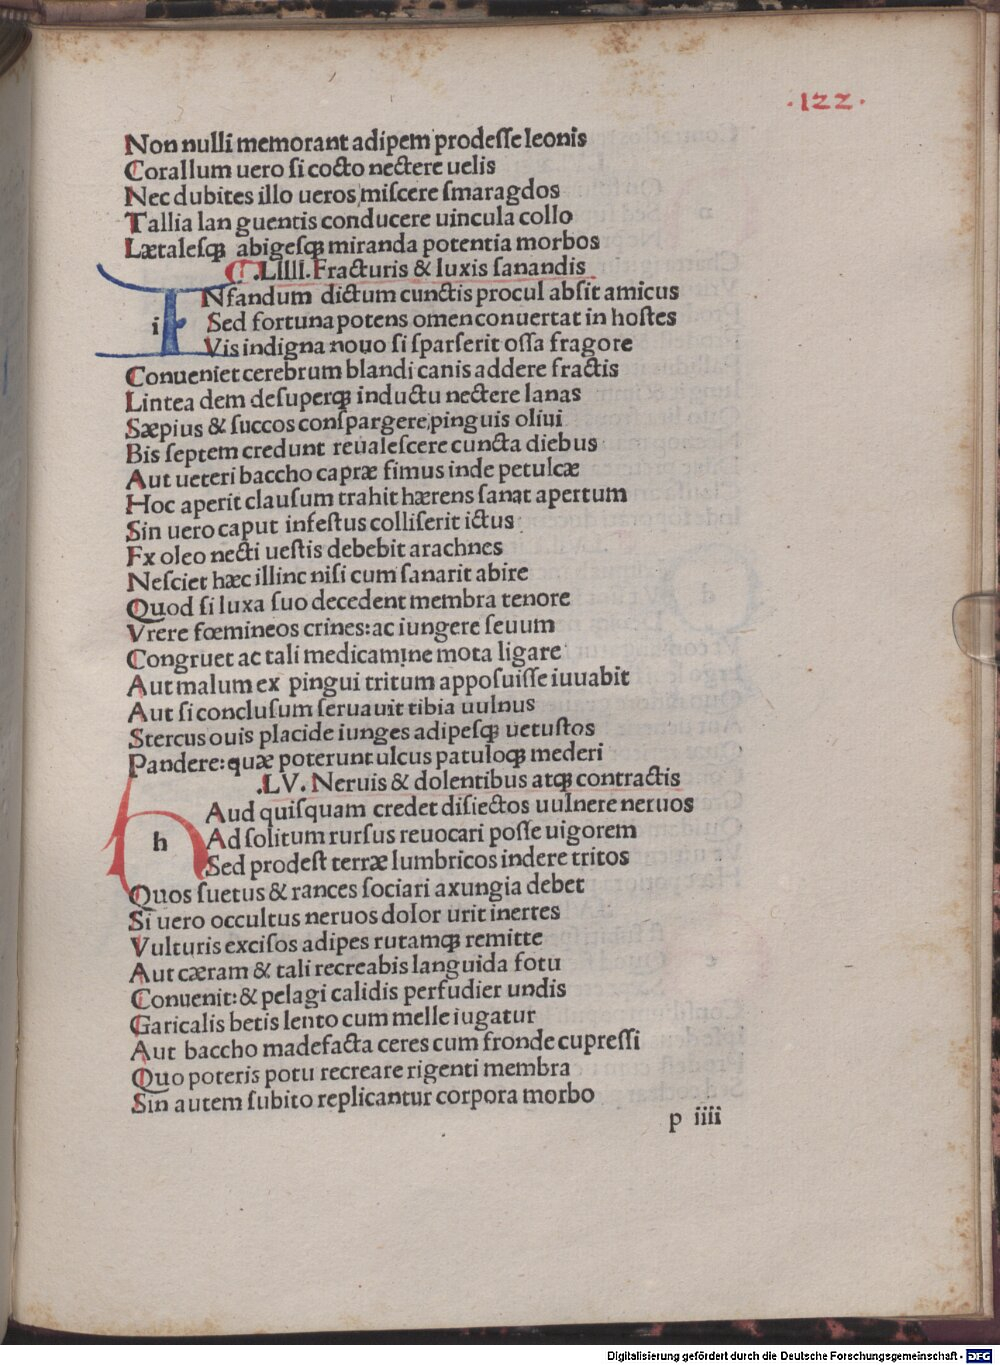 ·122·
Non nulli memorant adipem prodeſſe leonis
Corallum uero ſi cocto nectere uelis
Nec dubites illo ueros miſcere ſmaragdos
Tallia lan guentis conducere uincula collo
Lætaleſqꝫ abigeſqꝫ miranda potentia morbos
.LIIII. Fracturis & luxis ſanandis
i INfandum dictum cunctis procul abſit amicus
Sed fortuna potens omen conuertat in hoſtes
Vis indigna nouo ſi ſparſerit oſſa fragore
Conueniet cerebrum blandi canis addere fractis
Lintea dem deſuperqꝫ inductu nectere lanas
Sæpius & ſuccos conſpargere pinguis oliui
Bis ſeptem credunt reualeſcere cuncta diebus
Aut ueteri baccho capræ fimus inde petulcæ
Hoc aperit clauſum trahit hærens ſanat apertum
Sin uero caput infeſtus colliſerit ictus
Ex oleo necti ueſtis debebit arachnes
Neſciet hæc illinc niſi cum ſanarit abire
Quod ſi luxa ſuo decedent membra tenore
Vrere fœmineos crines: ac iungere ſeuum
Congruet ac tali medicamine mota ligare
Aut malum ex pingui tritum appoſuiſſe iuuabit
Aut ſi concluſum ſeruauit tibia uulnus
Stercus ouis placide iunges adipeſqꝫ uetuſtos
Pandere: quæ poterunt ulcus patuloqꝫ mederi
.LV. Neruis & dolentibus atqꝫ contractis
h Aud quiſquam credet diſiectos uulnere neruos
Ad ſolitum rurſus reuocari poſſe uigorem
Sed prodeſt terræ lumbricos indere tritos
Quos ſuetus & rances ſociari axungia debet
Si uero occultus neruos dolor urit inertes
Vulturis exciſos adipes rutamqꝫ remitte
Aut cæram & tali recreabis languida fotu
Conuenit: & pelagi calidis perfudier undis
Garicalis betis lento cum melle iugatur
Aut baccho madefacta ceres cum fronde cupreſſi
Quo poteris potu recreare rigenti membra
Sin autem ſubito replicantur corpora morbo
p iiii
Digitalisierung gefördert durch die Deutsche Forschungsgemeinschaft - DFG